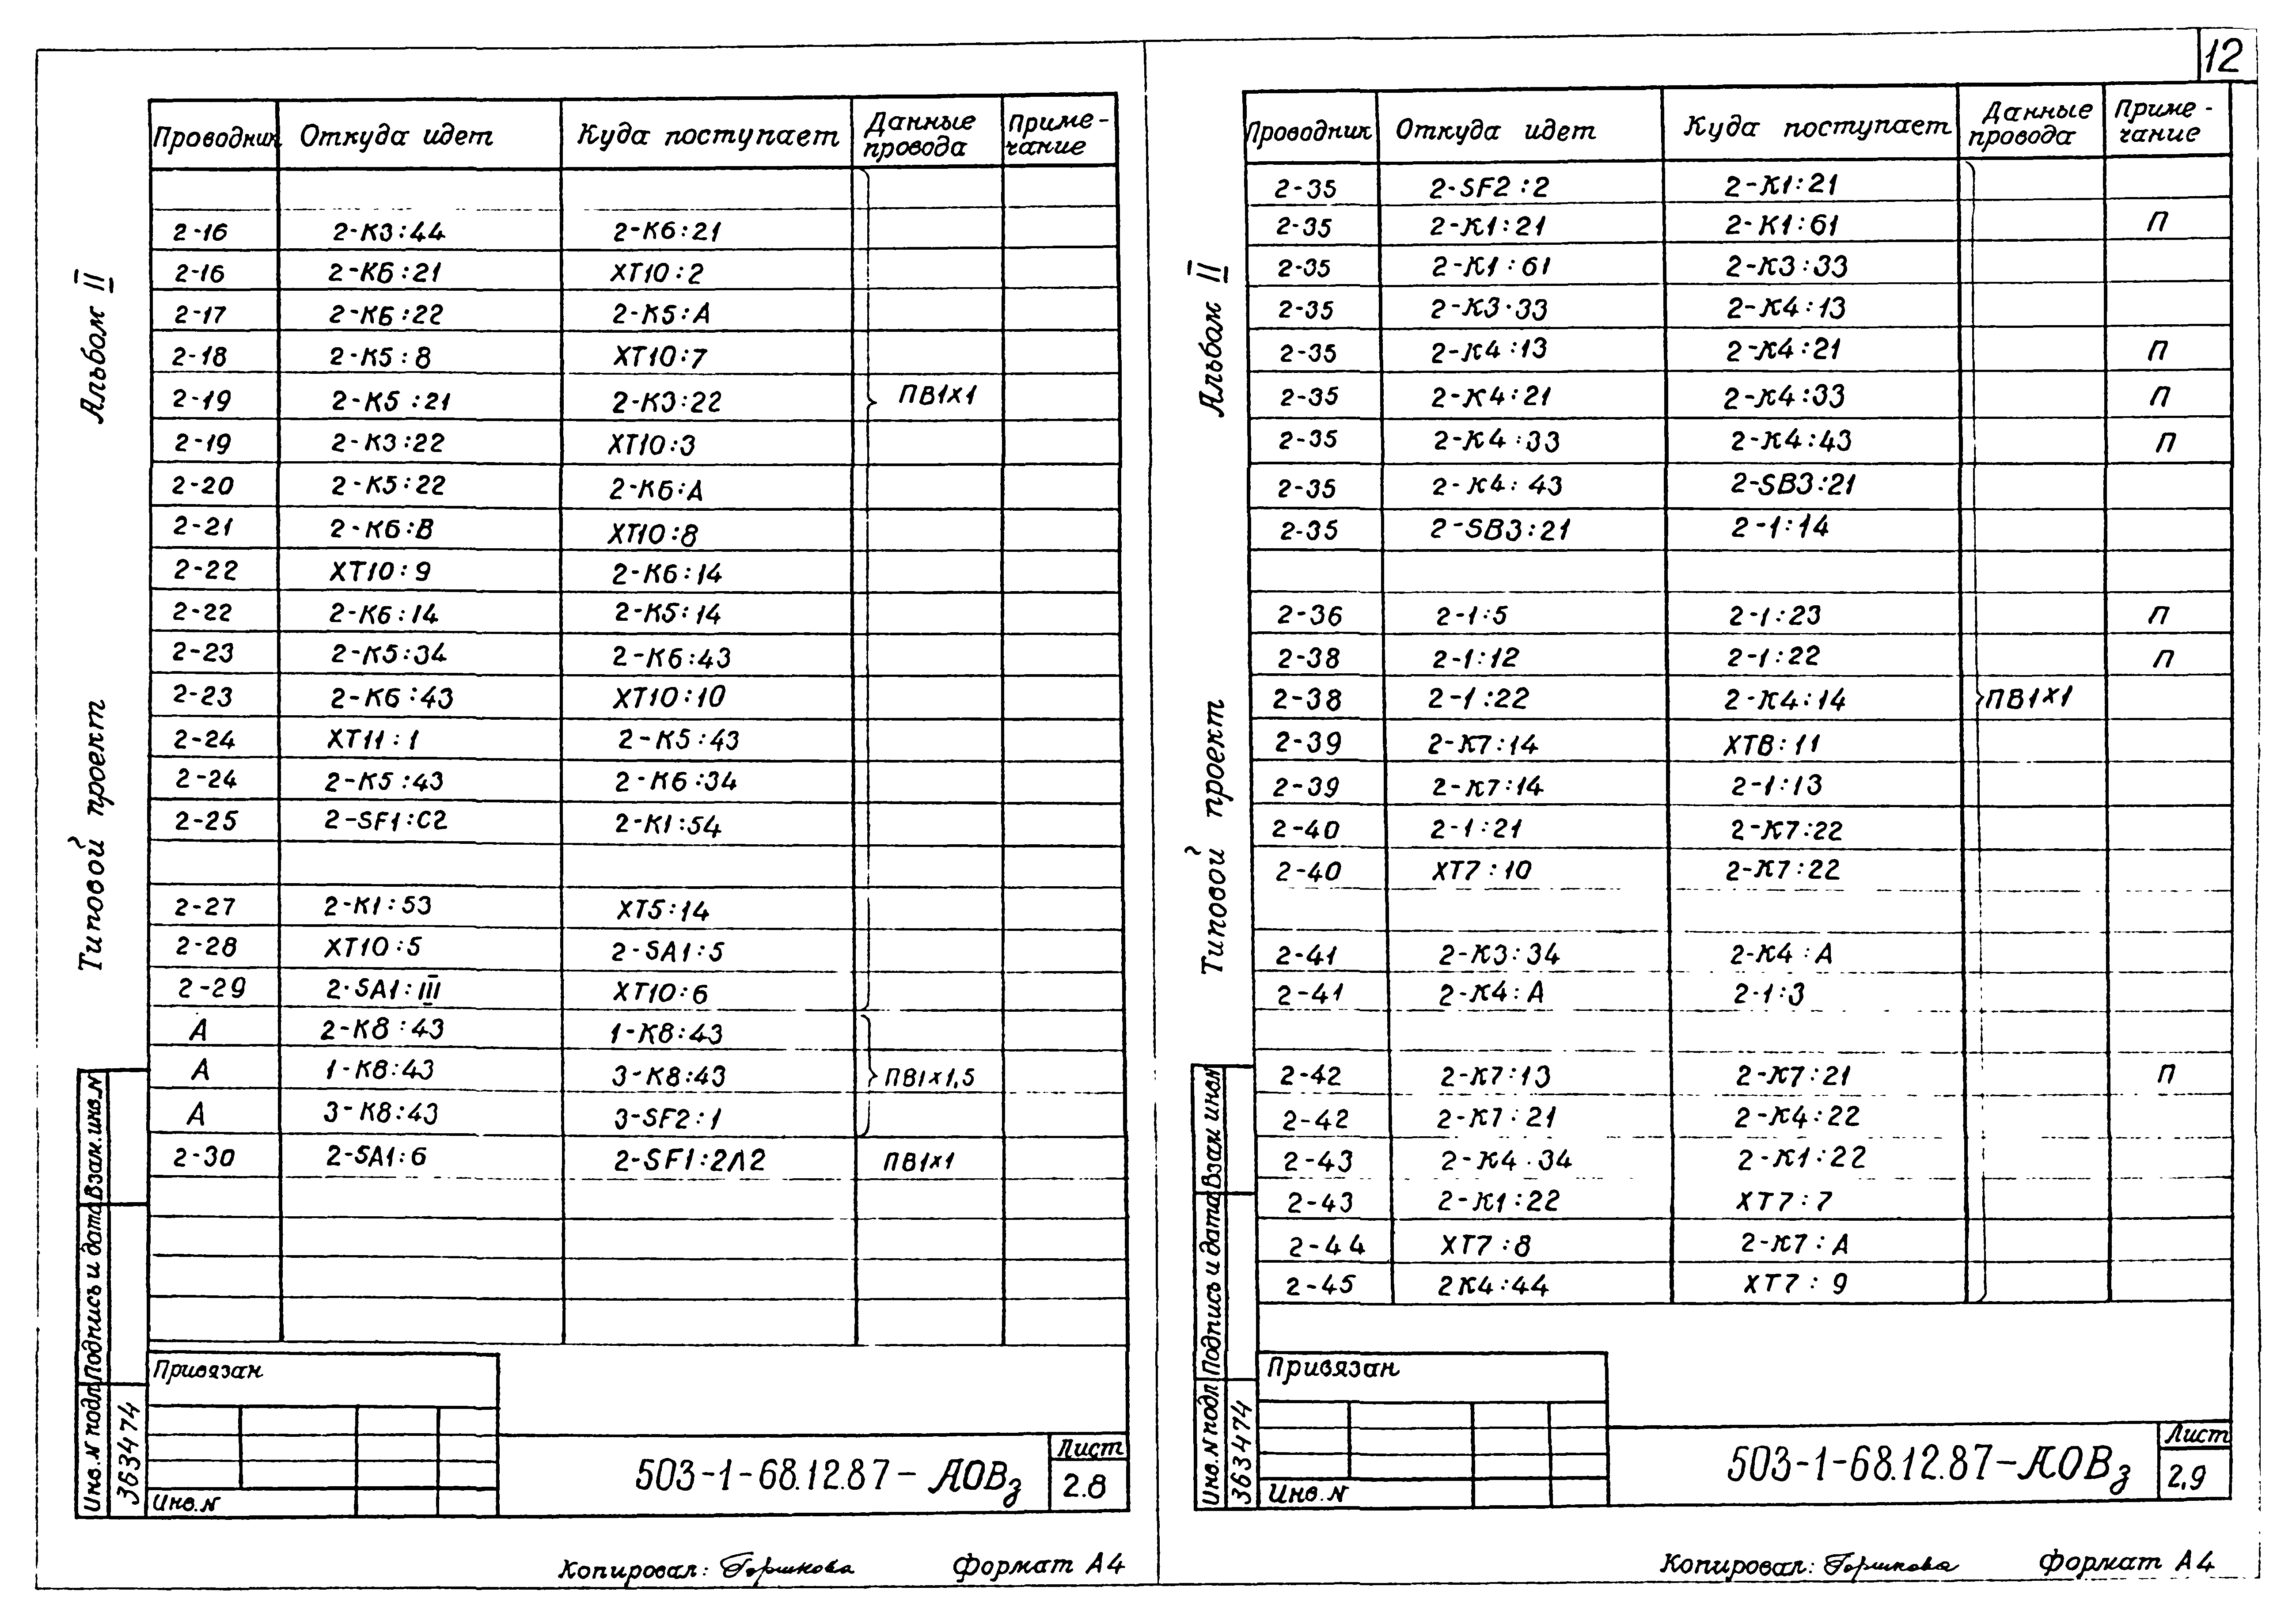 12
Альбом II
Типовой проект
Проводник Откуда идет Куда поступает Данные провода Приме-чание
2-16 2-К3:44 2-К6:21
2-16 2-К6:21 ХТ10:2
2-17 2-К6:22 2-К5:А
2-18 2-К5:8 ХТ10:7
2-19 2-К5:21 2-К3:22 ПВ1х1
2-19 2-К3:22 ХТ10:3
2-20 2-К5:22 2-К6:А
2-21 2-К6:В ХТ10:8
2-22 ХТ10:9 2-К6:14
2-22 2-К6:14 2-К5:14
2-23 2-К5:34 2-К6:43
2-23 2-К6:43 ХТ10:10
2-24 ХТ11:1 2-К5:43
2-24 2-К5:43 2-К6:34
2-25 2-SF1:C2 2-К1:54
2-27 2-К1:53 ХТ5:14
2-28 ХТ10:5 2-SA1:5
2-29 2·SA1:III ХТ10:6
А 2-К8:43 1-К8:43
А 1-К8:43 3-К8:43 ПВ1х1,5
А 3-К8:43 3-SF2:1
2-30 2-SA1:6 2-SF1:2Л2 ПВ1х1
Привязан
Инв.N
503-1-68.12.87-АОВз
Лист
2.8
Взам.инв.N
Подпись и дата
Инв.N подл
363474
Копировал: Горшкова Формат А4
Альбом II
Типовой проект
Проводник Откуда идет Куда поступает Данные провода Приме-чание
2-35 2-SF2:2 2-К1:21
2-35 2-К1:21 2-К1:61 П
2-35 2-К1:61 2-К3:33
2-35 2-К3·33 2-К4:13
2-35 2-К4:13 2-К4:21 П
2-35 2-К4:21 2-К4:33 П
2-35 2-К4:33 2-К4:43 П
2-35 2-К4:43 2-SB3:21
2-35 2-SB3:21 2-1:14
2-36 2-1:5 2-1:23 П
2-38 2-1:12 2-1:22 П
2-38 2-1:22 2-К4:14 ПВ1х1
2-39 2-К7:14 ХТ8:11
2-39 2-К7:14 2-1:13
2-40 2-1:21 2-К7:22
2-40 ХТ7:10 2-К7:22
2-41 2-К3:34 2-К4:А
2-41 2-К4:А 2-1:3
2-42 2-К7:13 2-К7:21 П
2-42 2-К7:21 2-К4:22
2-43 2-К4·34 2-К1:22
2-43 2-К1:22 ХТ7:7
2-44 ХТ7:8 2-К7:А
2-45 2К4:44 ХТ7:9
Привязан
Инв.N
503-1-68.12.87-АОВз
Лист
2,9
Взам инвN
Подпись и дата
Инв.N подл
363474
Копировал: Горшкова Формат А4